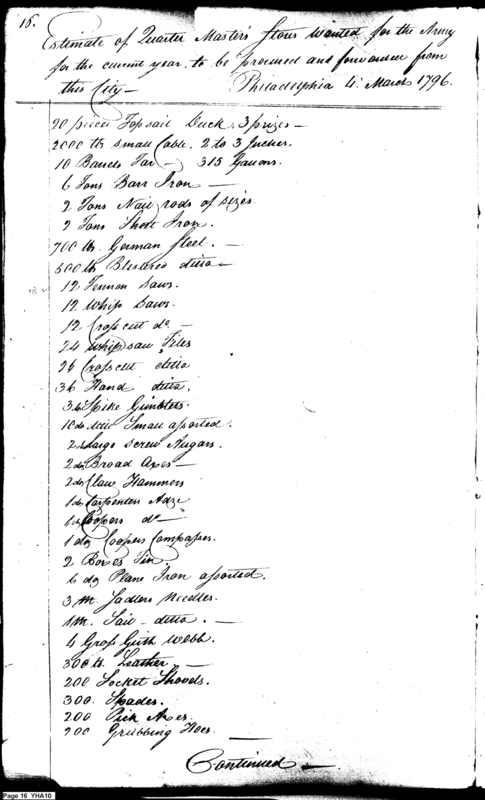 16.
Estimate of Quarter Master's Stores wanted for the Army
for the current year, to be procured and forwarded from
this City — Philadelphia 4. March 1796.
20 pieces Topsail Duck, 3 prizes —
2000 lb small Cable, 2 to 3 Inches.
10 Barrels Tar — 315 Gallons.
6 Tons Barr Iron —
2 Tons Nail rods of sizes
2 Tons Sheet Iron.
700 lb. German Steel. —
500 lb Blistered ditto —
12 Tennon Saws.
12 Whip Saws.
12 Cross cut do —
24 Whip saw Files
26 Crosscut ditto
36 Hand ditto.
3 dz Spike Gimblets
10 do Small assorted.
2 dz Large Screw Augars.
2 dz Broad Axes —
2 dz Claw Hammers
1 dz Carpenters Adze
1 dz Coopers do —
1 dz Coopers Compasses.
2 Boxes Tin.
6 dz Plane Iron assorted.
3 M. Sadlers Needles.
1 M. Sail - ditto. —
4 Gross Girth Webb.
300 lb. Leather —
200 Socket Shovels.
300. Spades.
200 Pick Axes
200 Grubbing Hoes
Continued —
Page 16 YHA10